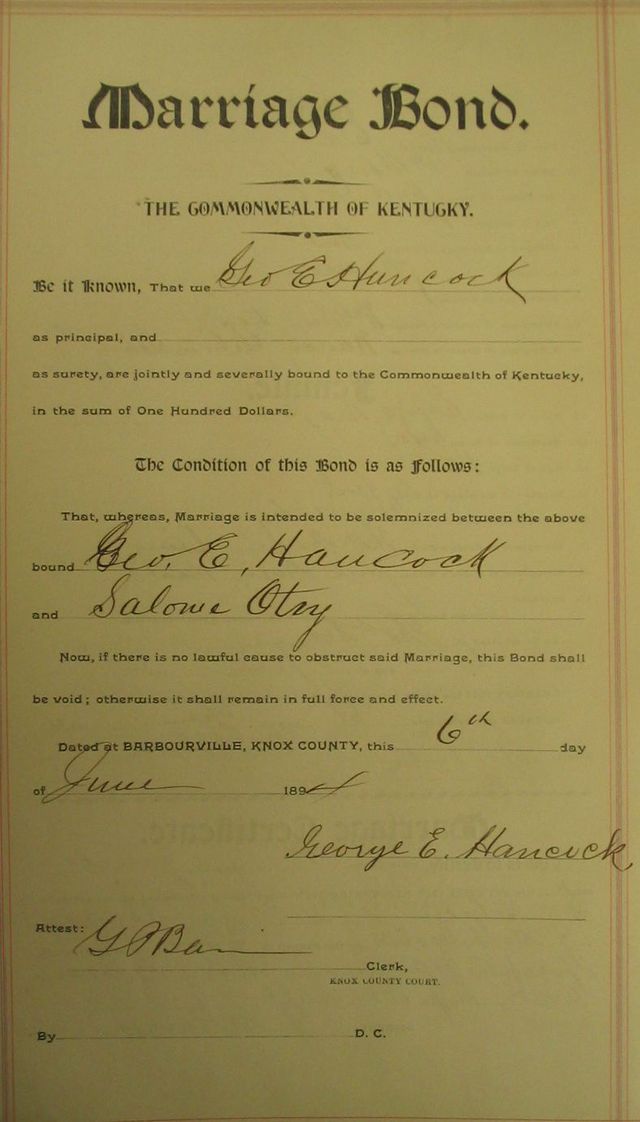 Marriage Bond.
THE COMMONWEALTH OF KENTUCKY.
Be it Known, That we Geo E Hancock
as principal, and
as surety, are jointly and severally bound to the Commonwealth of Kentucky,
in the sum of One Hundred Dollars.
The Condition of this Bond is as Follows:
That, whereas, Marriage is intended to be solemnized between the above
bound Geo. E. Hancock
and Salome Otey
Now, if there is no lawful cause to obstruct said Marriage, this Bond shall
be void; otherwise it shall remain in full force and effect.
Dated at BARBOURVILLE, KNOX COUNTY, this 6th day
of June 1894
George E. Hancock
Attest:
Clerk,
KNOX COUNTY COURT.
By D. C.